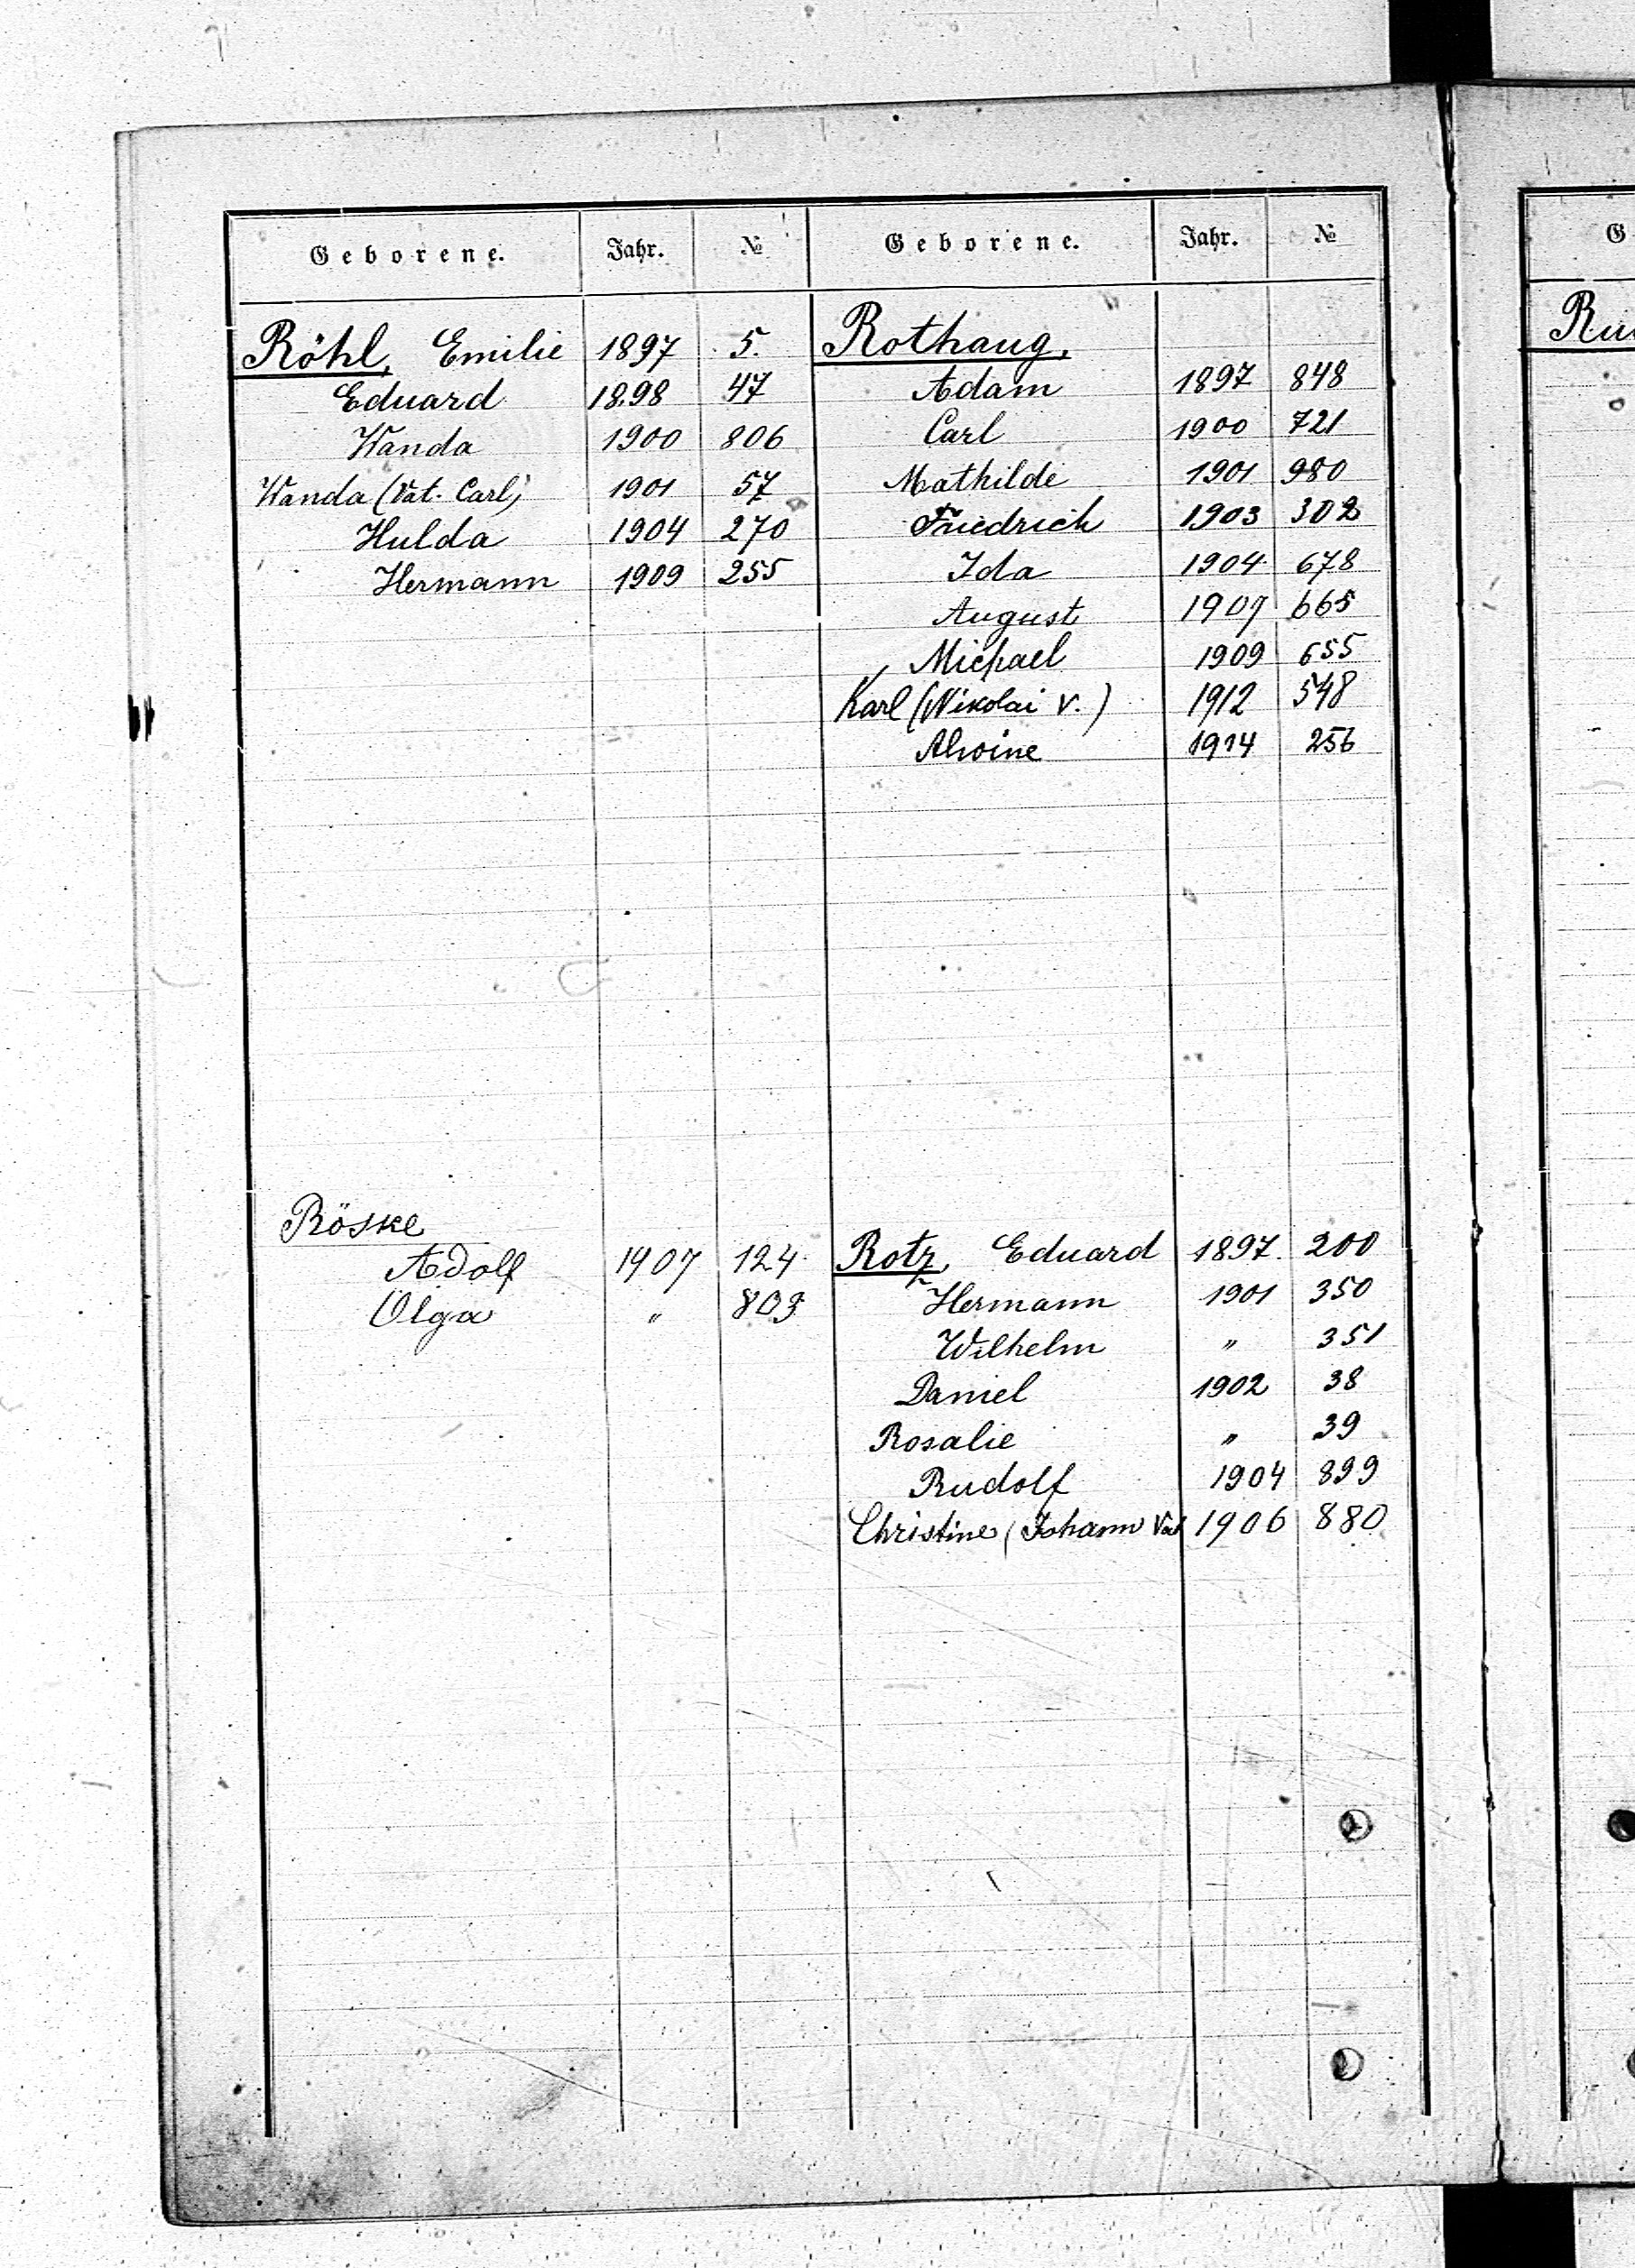 Geborene. Jahr. №
Röhl, Emilie 1897 5.
Eduard 1898 47
Wanda 1900 806
Wanda (Vat. Carl) 1901 57
Hulda 1904 270
Hermann 1909 255
Röske
Adolf 1907 124
Olga " 803
Geborene. Jahr. №
Rothaug,
Adam 1897 848
Carl 1900 721
Mathilde 1901 980
Friedrich 1903 302
Ida 1904 678
August 1907 665
Michael 1909 655
Karl (Nikolai V.) 1912 548
Alwine 1914 256
Rotz, Eduard 1897. 200
Hermann 1901 350
Wilhelm " 351
Daniel 1902 38
Rosalie " 39
Rudolf 1904 899
Christine (Johann Vat 1906 880
G